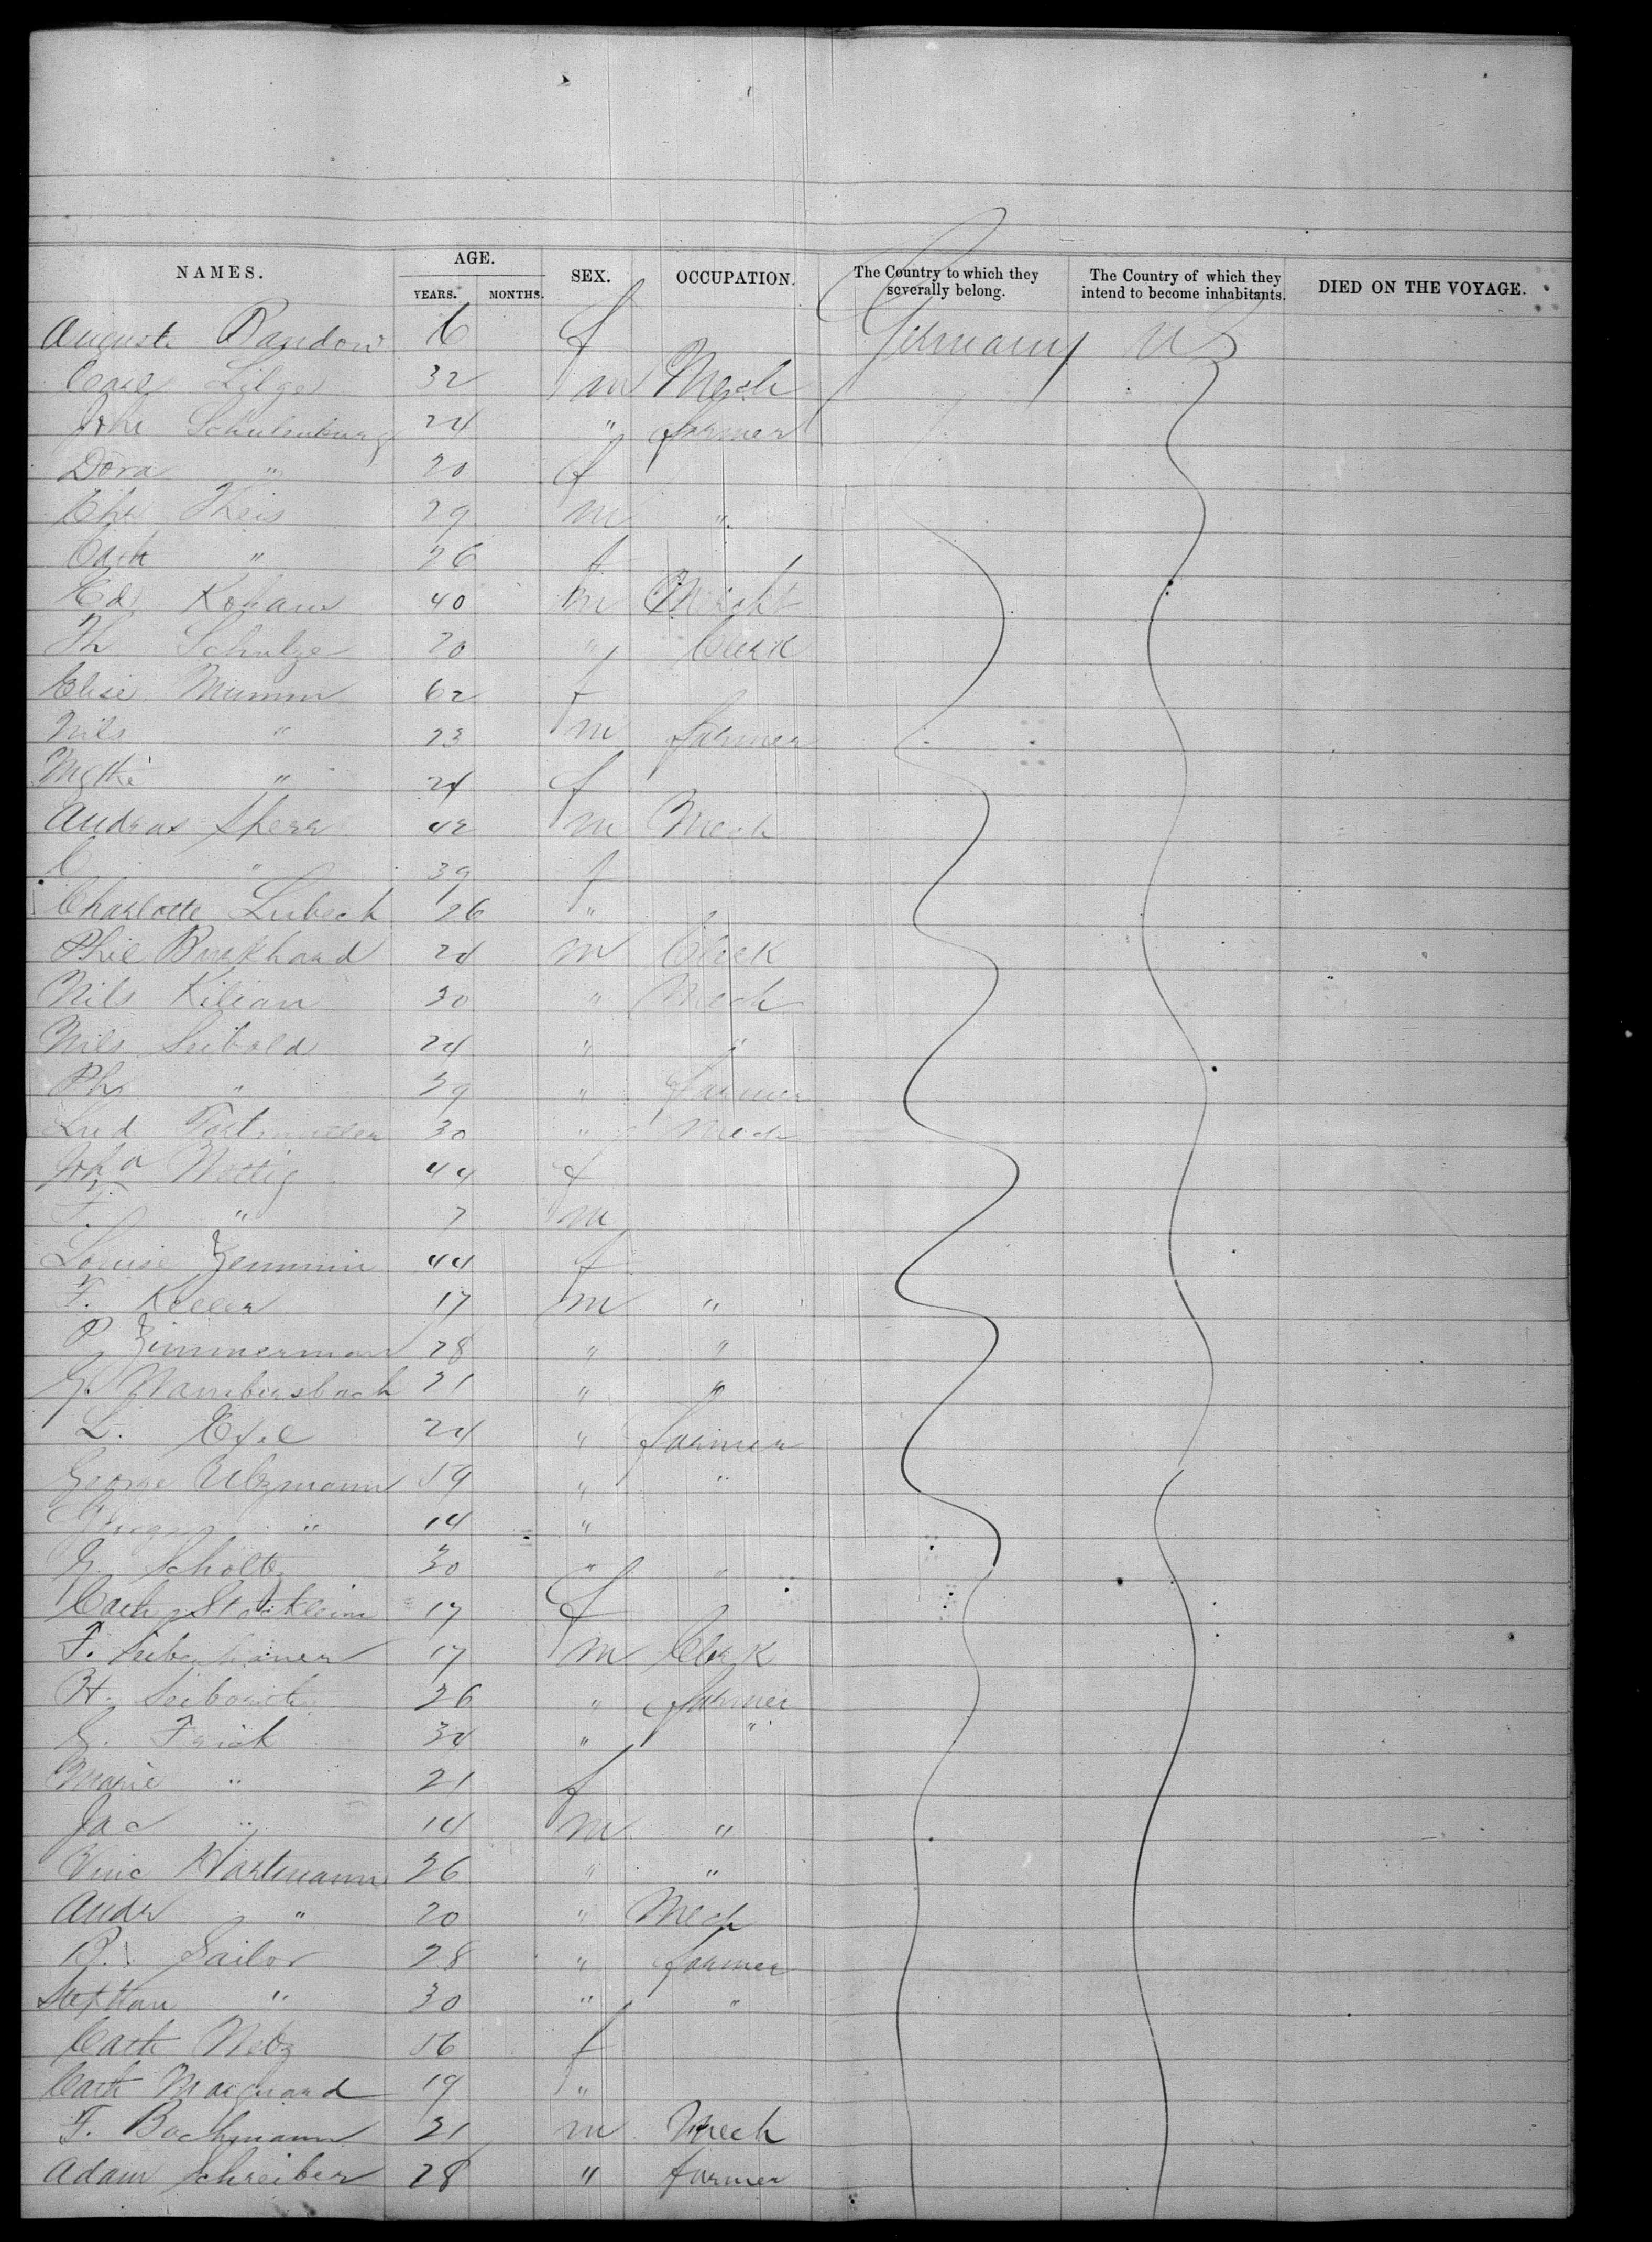 NAMES. AGE. YEARS. MONTHS. SEX. OCCUPATION. The Country to which they severally belong. The Country of which they intend to become inhabitants. DIED ON THE VOYAGE.
Auguste Randow 6 f Germany US
Carl Lilge 32 m Mech
Joh Schulenburg 24 " farmer
Dora " 20 f
Chr Theis 29 m "
Cath " 26 f
Ed Koham 40 m Mercht
Th Schulze 20 " Clerk
Elise Mumm 62 f
Nils " 23 m farmer
Mgthe " 24 f
Andreas Sherr 42 m Mech
C " 39 f
Charlotte Lubeck 26 "
Phil Burkhard 24 m Clerk
Nils Kilian 30 " Mech
Nils Seibold 24 " "
Ph " 39 " farmer
Lud Fortmuller 30 " Mech
Joha Nottig 44 f
F. " 7 m
Louise Zemmin 44 f
F. Keller 17 m "
P Zimmerman 28 " "
G. Wambersbach 21 " "
L. Exel 24 " farmer
George Utzmann 59 " "
George " 14 "
G. Scholtz 30 " "
Cath Stocklein 17 f
F. 17 m Clerk
H. 26 " farmer
G. Frick 34 " "
Marie " 21 f
Jac " 14 m "
Hartmann 26 " "
Andr " 20 " Mech
R. Sailor 28 " farmer
Stephan " 30 " "
Cath Netz 56 f
Cath Marquard 19 "
F. Bachmann 21 m Mech
Adam Schreiber 28 " farmer